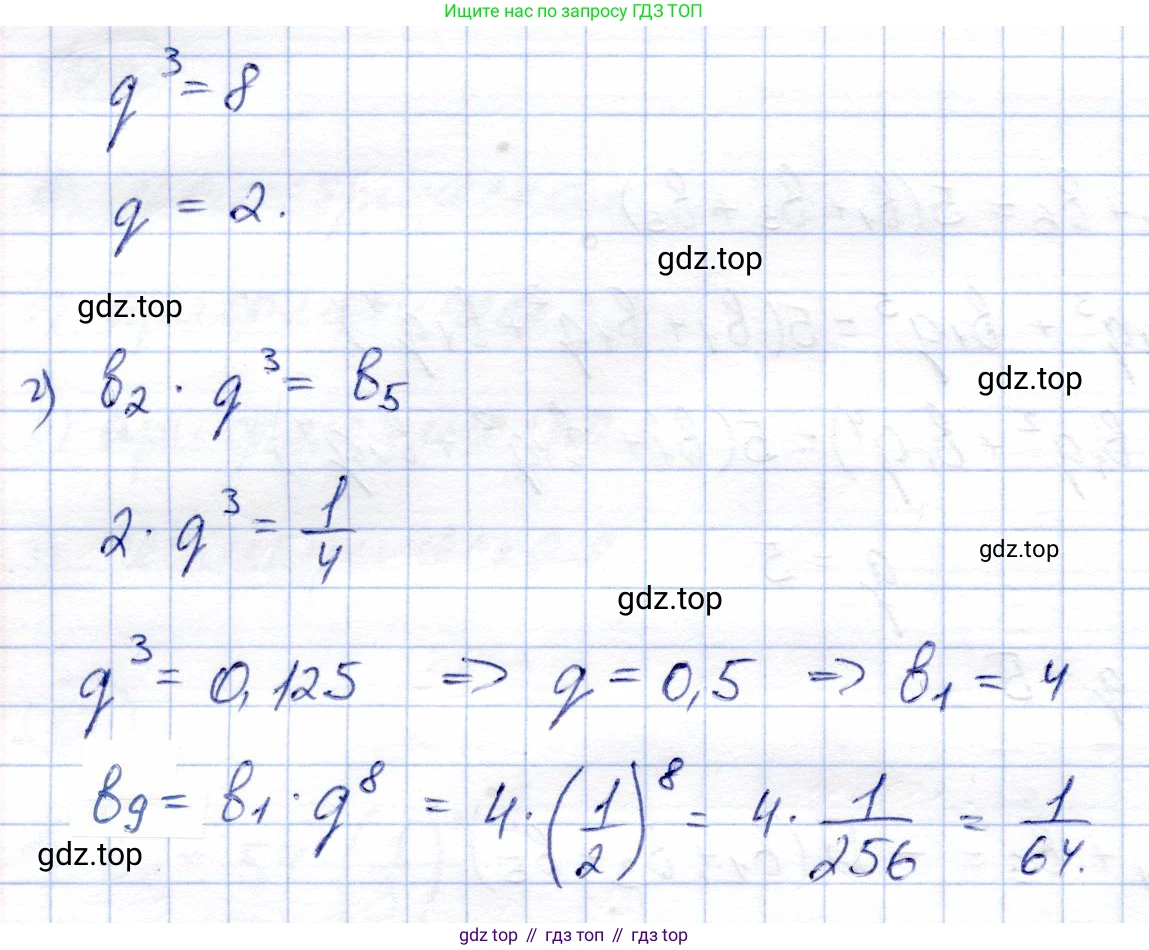 Ищите нас по запросу ГДЗ ТОП
q³ = 8
q = 2.
gdz.top
gdz.top
г) b₂ · q³ = b₅
gdz.top
2 · q³ = 1/4
gdz.top
gdz.top
q³ = 0,125 => q = 0,5 => b₁ = 4
b₉ = b₁ · q⁸ = 4 · (1/2)⁸ = 4 · 1/256 = 1/64.
gdz.top
gdz.top // гдз топ // гдз top